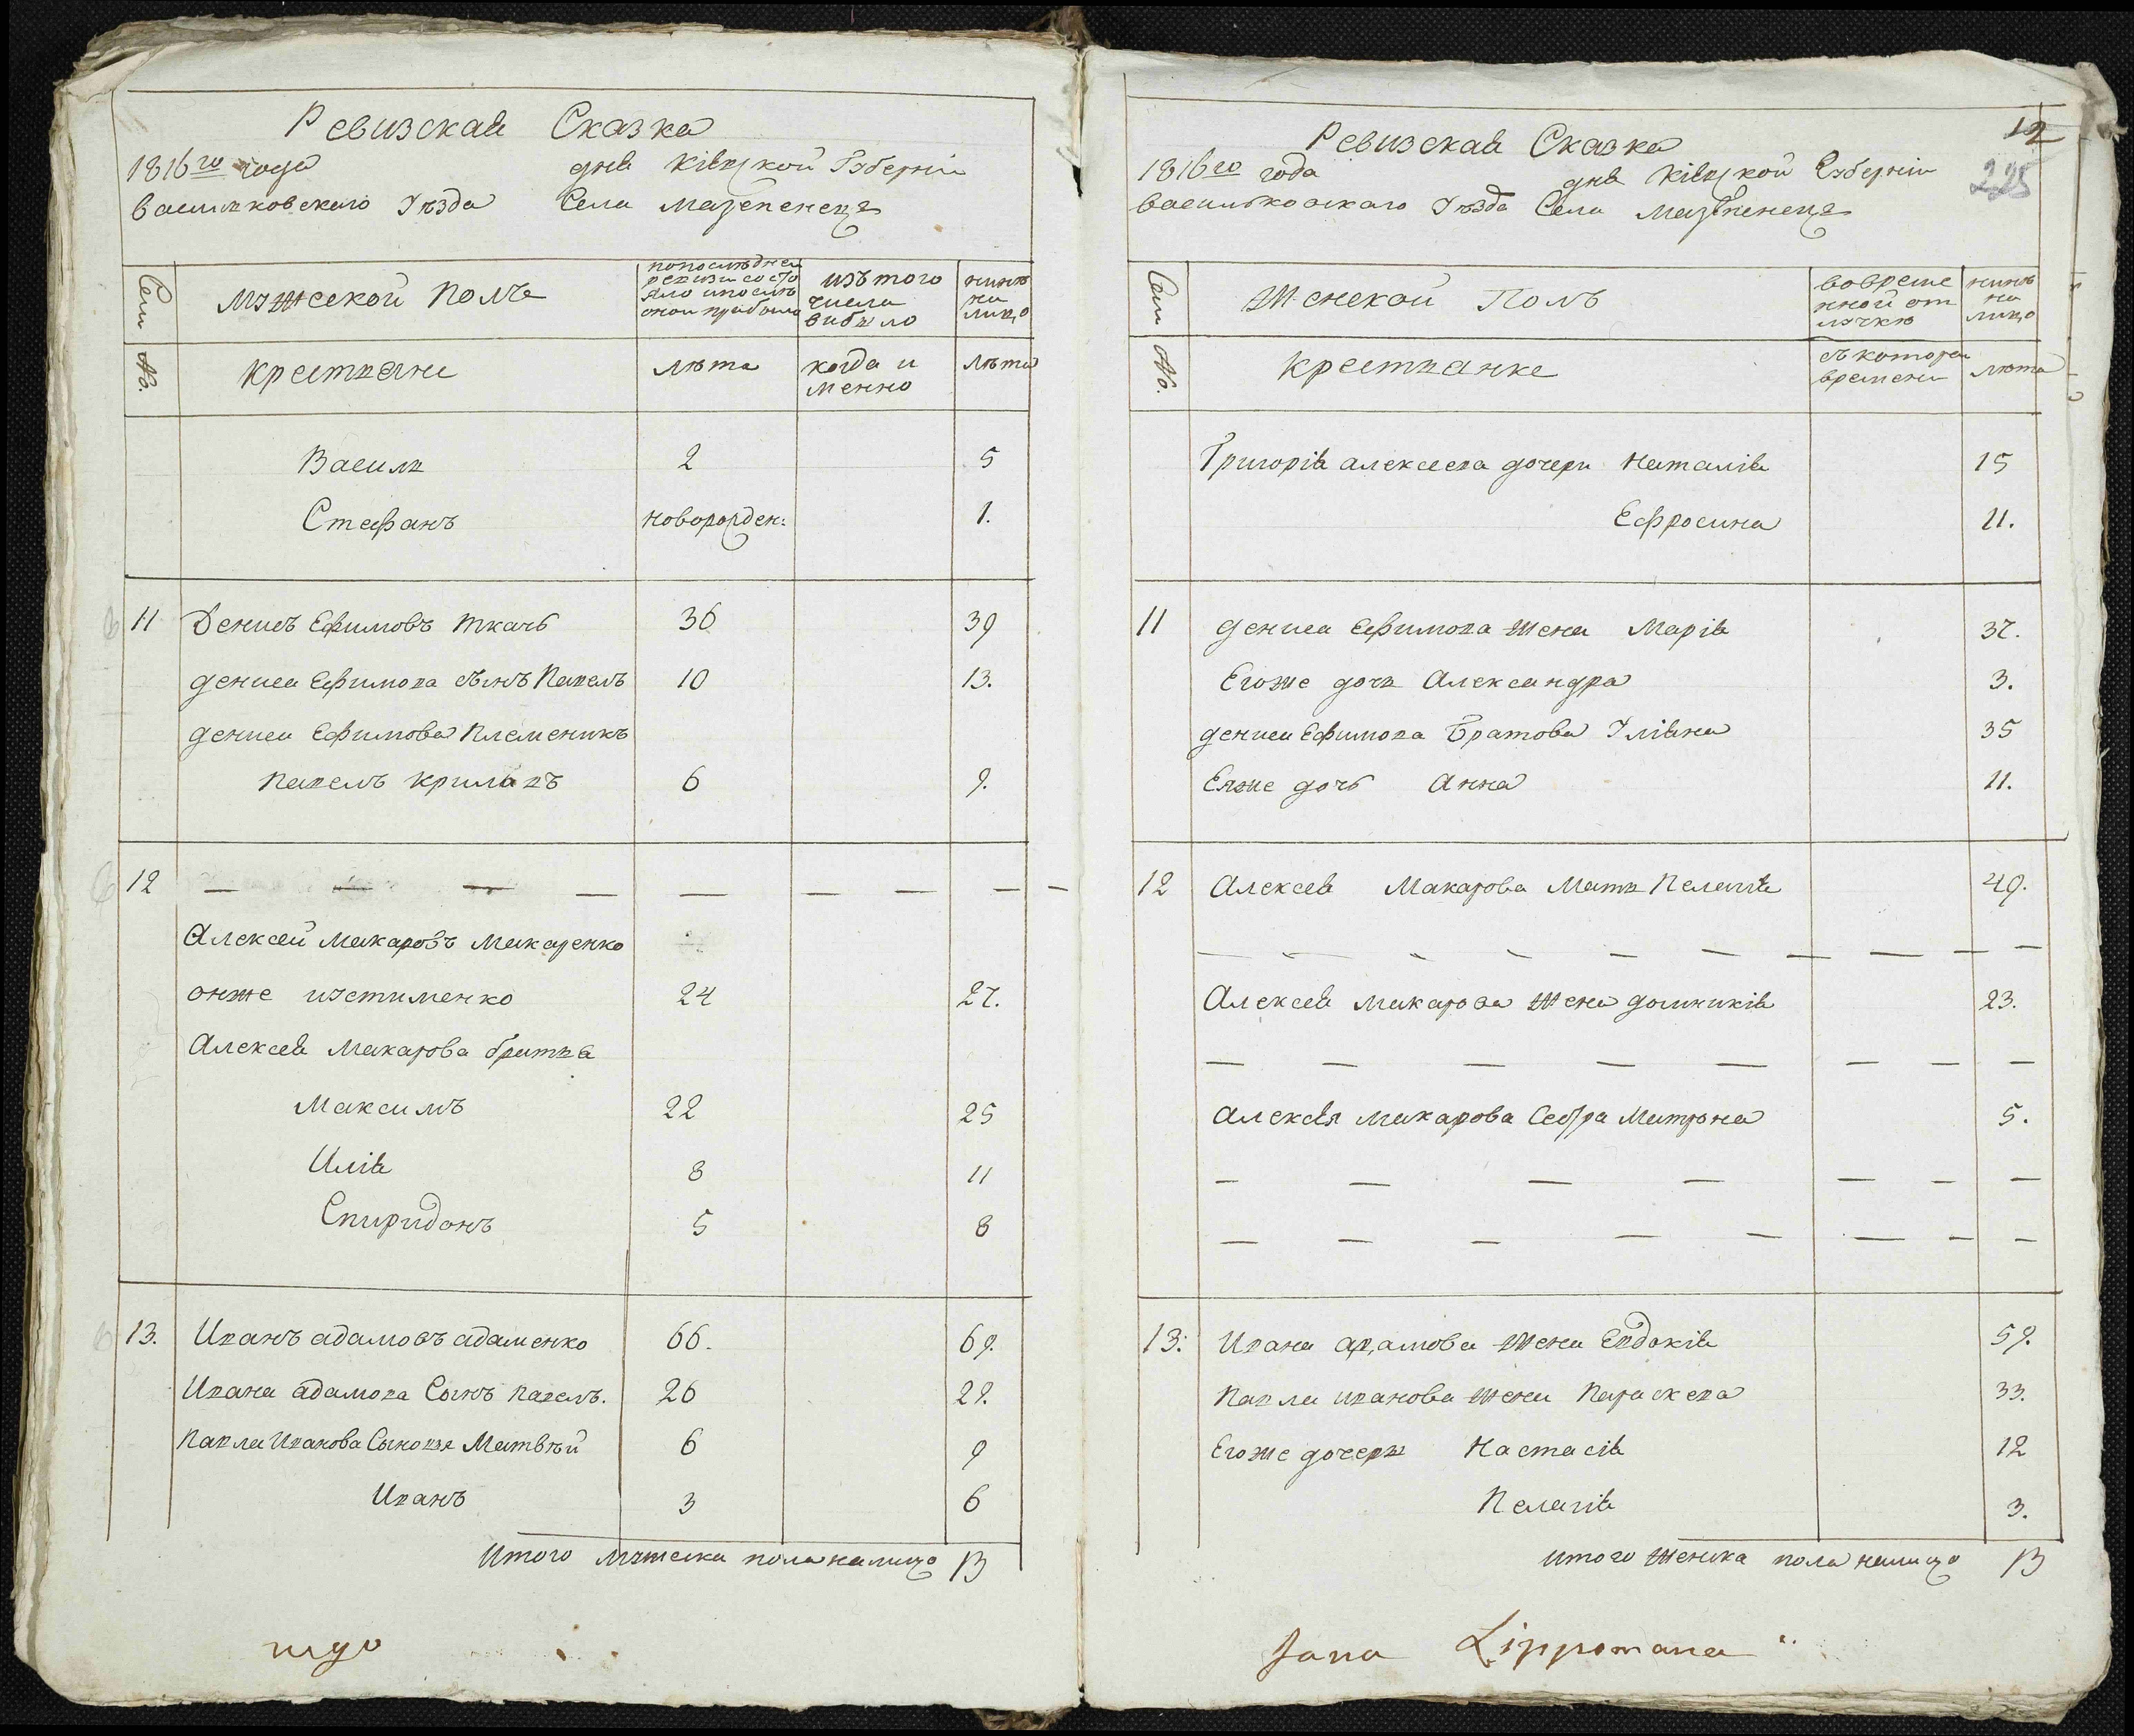 Ревизская Сказка
1816го года дня Кіевской Губерніи
Васильковского Уезда Села Мазепенецъ
Сем №.
Мужеской Полъ
попоследней ревизи состояло ипосле оной прибыло
изътого числа вибыло
нине на лицо
крестяне
лета
когда и менно
лета
Василь 2 5
Стефанъ новорожден: 1.
11 Денисъ Ефимовъ Ткачь 36 39
Дениса Ефимова сынъ Павелъ 10 13.
Дениса Ефимова Племеникъ
Павелъ Крилавъ 6 9.
12 — — — — — — — — —
Алексей Макаровъ Макаренко
онже Устименко 24 27.
Алексея Макарова братья
Максимъ 22 25
Илія 8 11
Спиридонъ 5 8
13. Иванъ Адамовъ Адаменко 66. 69.
Ивана Адамова Сынъ Павелъ. 26 29.
Павла Иванова Сыновья Матвей 6 9
Иванъ 3 6
Итого мужеска пола налицо 13
12
225
Ревизская Сказка
1816го года дня Кіевской Губерніи
Васильковскаго Уезда Села Мазепенецъ
Сем №.
Женской Полъ
вовременной отлучке
нине на лицо
крестянке
съ которого времени
лета
Григорія Алексеева дочери Наталія 15
Ефросина 11.
11 Дениса Ефимова жена Марія 37.
Егоже дочь Александра 3.
Дениса Ефимова Братова Уліяна 35
Еяже дочь Анна 11.
12 Алексея Макарова Мать Пелагія 49.
— — — — — — — — — —
Алексея Макарова жена Домникія 23.
— — — — — — — —
Алексея Макарова Сестра Матрона 5.
— — — — — — —
— — — — — — — —
13: Ивана Адамова жена Евдокія 59.
Павла Иванова жена Параскева 33.
Егоже дочеры Настасія 12
Пелагія 3.
Итого женска пола налицо 13
Jana Lippomana